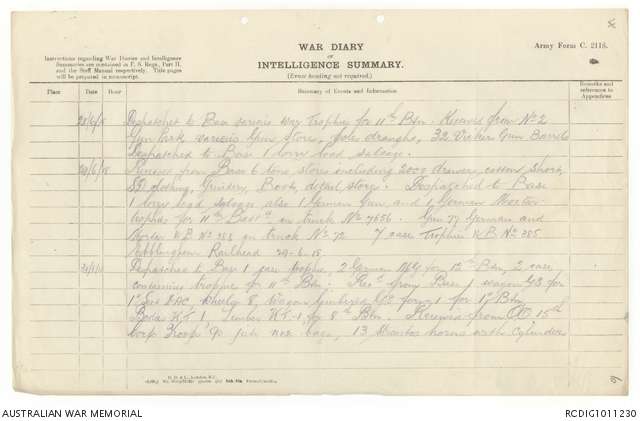 Army Form C. 2118.
WAR DIARY
or
INTELLIGENCE SUMMARY.
(Erase heading not required.)
Instructions regarding War Diaries and Intelligence
Summaries are contained in F. S. Regs., Part II.
and the Staff Manual respectively. Title pages
will be prepared in manuscript.
Place Date Hour Summary of Events and Information Remarks and
references to
Appendices
28/6/18 Despatched to Base various war Trophies for 11th Btn. Received from No 2
Gun Park various Gun Stores, poles draught, 32 Vickers Gun Barrels
Despatched to Base 1 lorry load salvage.
29/6/18 Received from Base 6 tons stores including 2000 drawers cotton short,
SD clothing, Grindery, Boots, detail stores. Despatched to Base
1 lorry load salvage also 1 German Gun and 1 German Mortar
trophies for 11th on truck No 7656. Gun 77 German and
W.B. No on truck No 72 7 case Trophies W.B. No 385
Railhead 29-6-18
Despatched to Base 1 case trophies, 2 German MG for 12th Btn, 2 case
containing trophies for 11th Btn. from Base 1 wagon GS for
DAC, wheels 8, Wagon Limbered GS 1 for Btn,
1 Limber 1 for 8th Btn. Received from OO 15th
Corp Troops 13 horns with Cylinders
AUSTRALIAN WAR MEMORIAL
RCDIG1011230